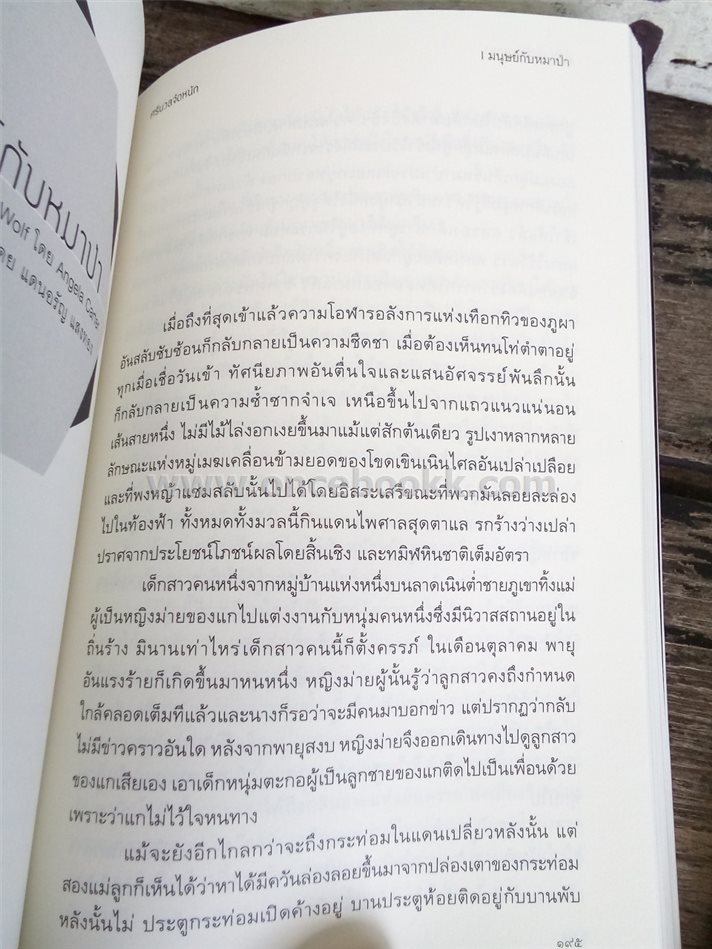 กับหมาป่า
Wolf โดย Angela Carter
แดนอรัญ แสงทอง
| มนุษย์กับหมาป่า
ศรีนวลจัดหนัก
เมื่อถึงที่สุดเข้าแล้วความโอฬารอลังการแห่งเทือกทิวของภูผา
อันสลับซับซ้อนก็กลับกลายเป็นความชืดชา เมื่อต้องเห็นทนโท่ตำตาอยู่
ทุกเมื่อเชื่อวันเข้า ทัศนียภาพอันตื่นใจและแสนอัศจรรย์พันลึกนั้น
ก็กลับกลายเป็นความซ้ำซากจำเจ เหนือขึ้นไปจากแถวแนวแน่นอน
เส้นสายหนึ่ง ไม่มีไม้ไล่งอกเงยขึ้นมาแม้แต่สักต้นเดียว รูปเงาหลากหลาย
ลักษณะแห่งหมู่เมฆเคลื่อนข้ามยอดของโขดเขินเนินไศลอันเปล่าเปลือย
และที่พงหญ้าแซมสลับนั้นไปได้โดยอิสระเสรีขณะที่พวกมันลอยละล่อง
ไปในท้องฟ้า ทั้งหมดทั้งมวลนี้กินแดนไพศาลสุดตาแล รกร้างว่างเปล่า
ปราศจากประโยชน์โภชน์ผลโดยสิ้นเชิง และทมิฬหินชาติเต็มอัตรา
เด็กสาวคนหนึ่งจากหมู่บ้านแห่งหนึ่งบนลาดเนินต่ำชายภูเขาทิ้งแม่
ผู้เป็นหญิงม่ายของแกไปแต่งงานกับหนุ่มคนหนึ่งซึ่งมีนิวาสสถานอยู่ใน
ถิ่นร้าง มินานเท่าไหร่เด็กสาวคนนี้ก็ตั้งครรภ์ ในเดือนตุลาคม พายุ
อันแรงร้ายก็เกิดขึ้นมาหนหนึ่ง หญิงม่ายผู้นั้นรู้ว่าลูกสาวคงถึงกำหนด
ใกล้คลอดเต็มทีแล้วและนางก็รอว่าจะมีคนมาบอกข่าว แต่ปรากฏว่ากลับ
ไม่มีข่าวคราวอันใด หลังจากพายุสงบ หญิงม่ายจึงออกเดินทางไปดูลูกสาว
ของแกเสียเอง เอาเด็กหนุ่มตะกอผู้เป็นลูกชายของแกติดไปเป็นเพื่อนด้วย
เพราะว่าแกไม่ไว้ใจหนทาง
แม้จะยังอีกไกลกว่าจะถึงกระท่อมในแดนเปลี่ยวหลังนั้น แต่
สองแม่ลูกก็เห็นได้ว่าหาได้มีควันล่องลอยขึ้นมาจากปล่องเตาของกระท่อม
หลังนั้นไม่ ประตูกระท่อมเปิดค้างอยู่ บานประตูห้อยติดอยู่กับบานพับ
๑๙๕